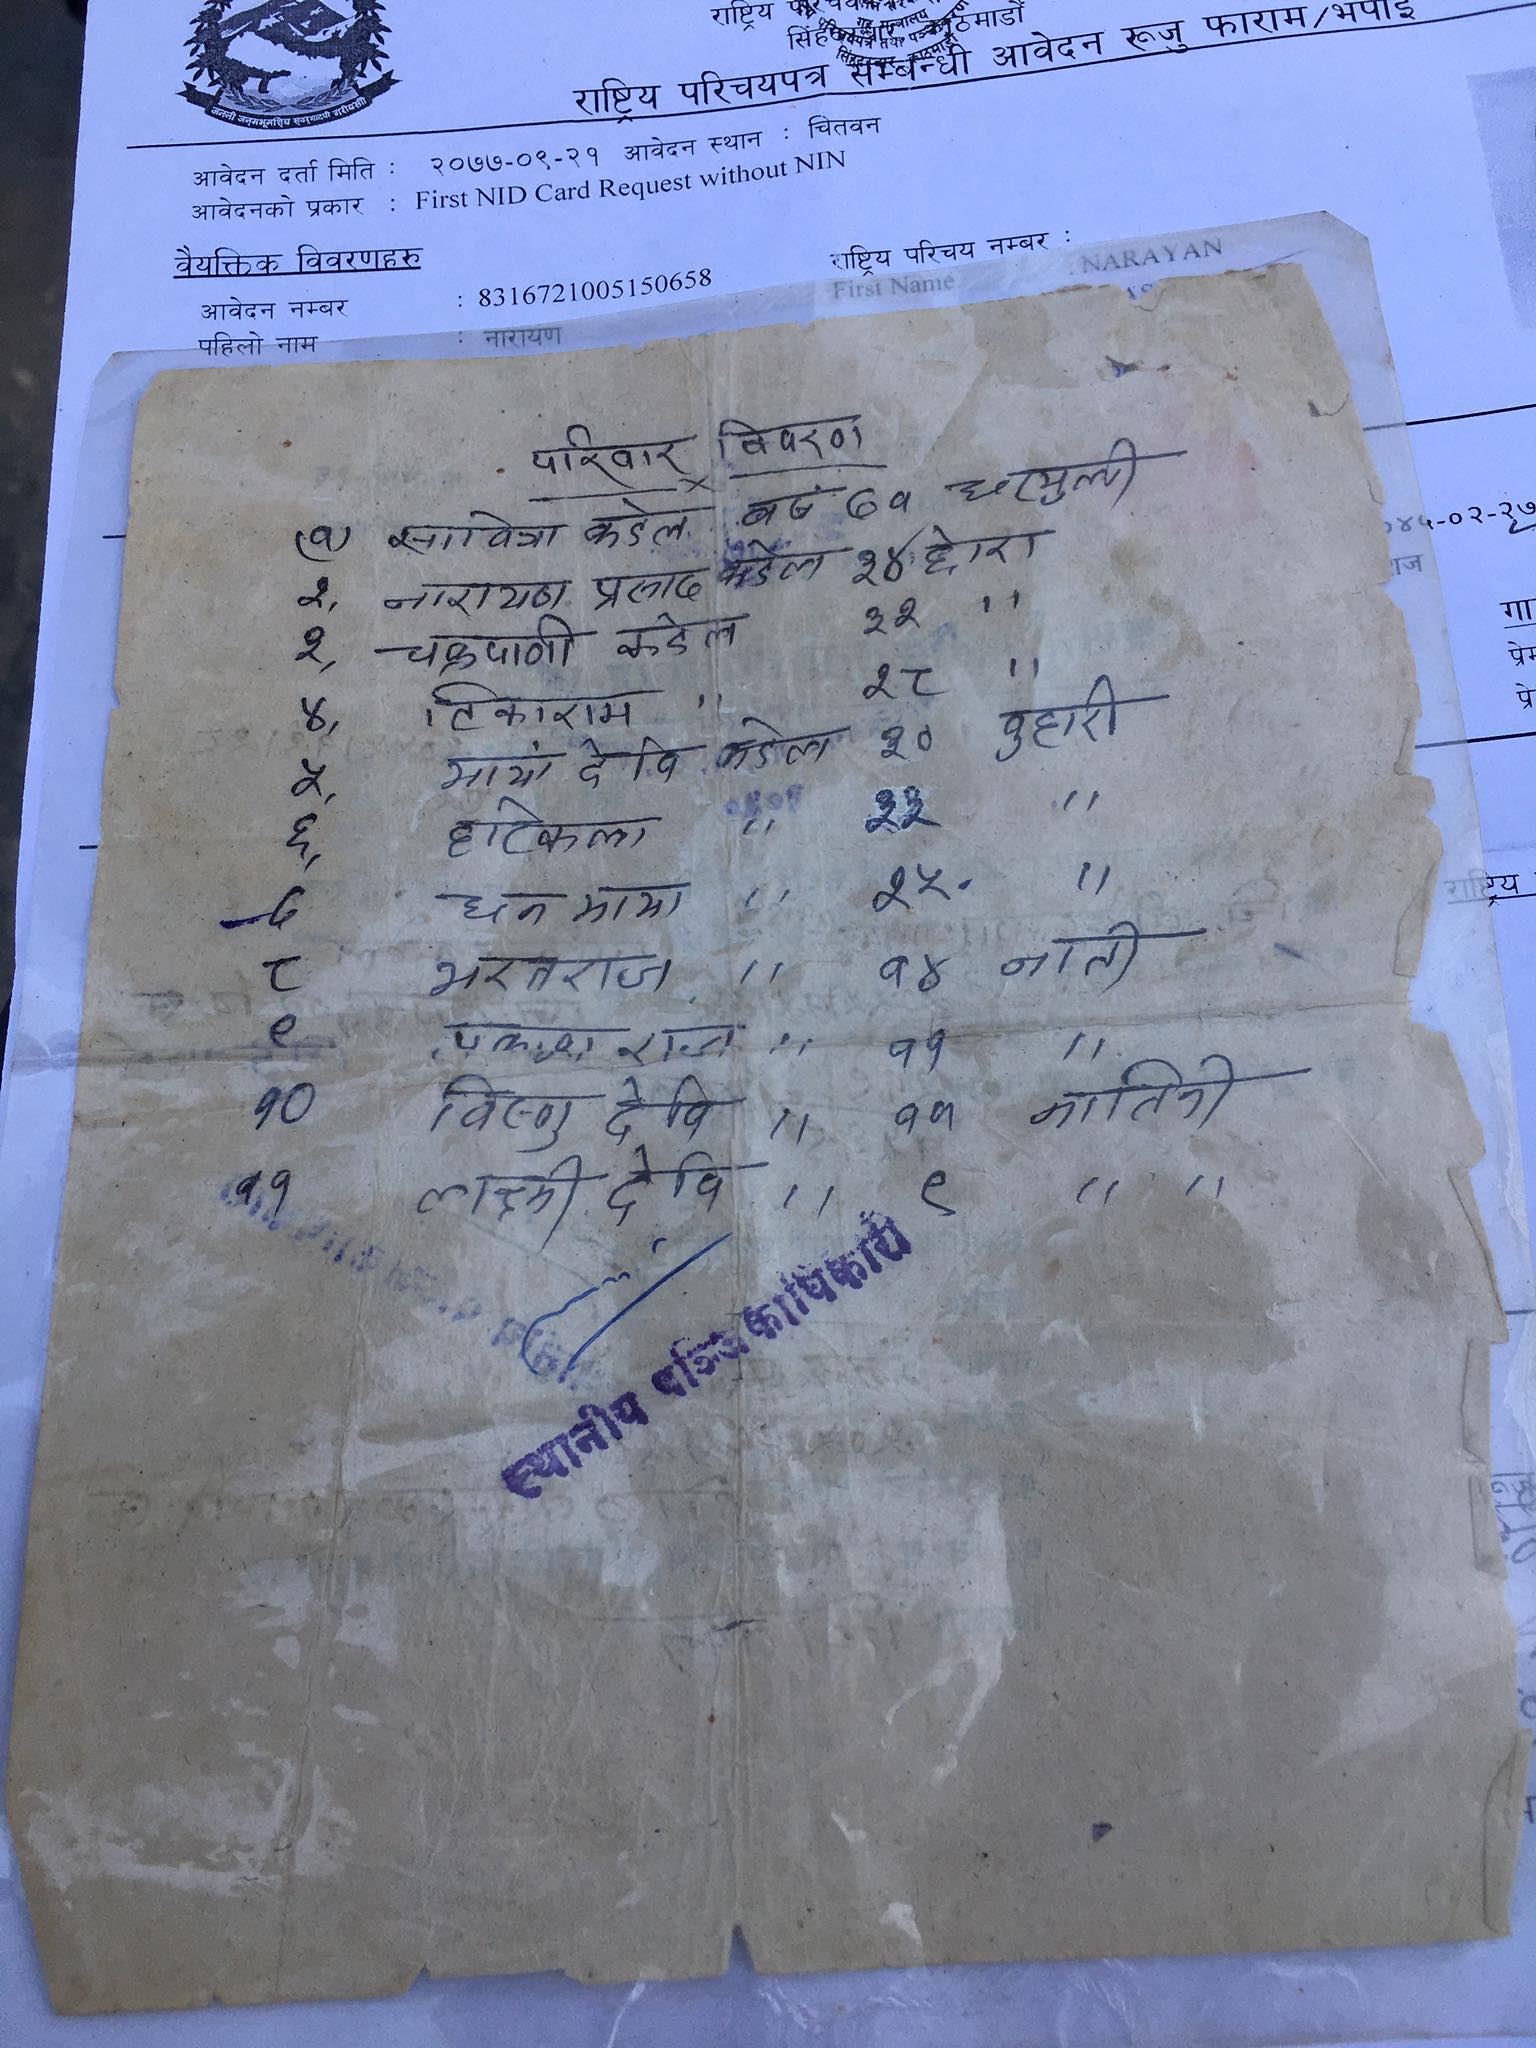 सिंहदरबार काठमाडौं
राष्ट्रिय परिचयपत्र सम्बन्धी आवेदन रूजु फाराम/भर्पाई
आवेदन दर्ता मिति : २०७७-०९-२१ आवेदन स्थान : चितवन
आवेदनको प्रकार : First NID Card Request without NIN
वैयक्तिक विवरणहरु
राष्ट्रिय परिचय नम्बर :
आवेदन नम्बर : 8316721005150658
First Name : NARAYAN
पहिलो नाम : नारायण
परिवार विवरण
(१) सावित्रा कडेल वर्ष ७१ घरमुली
२, नारायण प्रसाद कडेल ३४ छोरा
३, चक्रपाणी कडेल ३२ "
४, टिकाराम " २८ "
५, माया देवि कडेल ३० वुहारी
६, हरिकला " ३३ "
७ धन माया " २५ "
८ भरतराज " १४ नाती
९ प्रकाश राज " ११ "
१० विष्णु देवि " ११ नातिनी
११ लक्ष्मी देवि " ९ " "
स्थानीय पञ्जिकाधिकारी
०२-२७
राज
गा
राष्ट्रिय